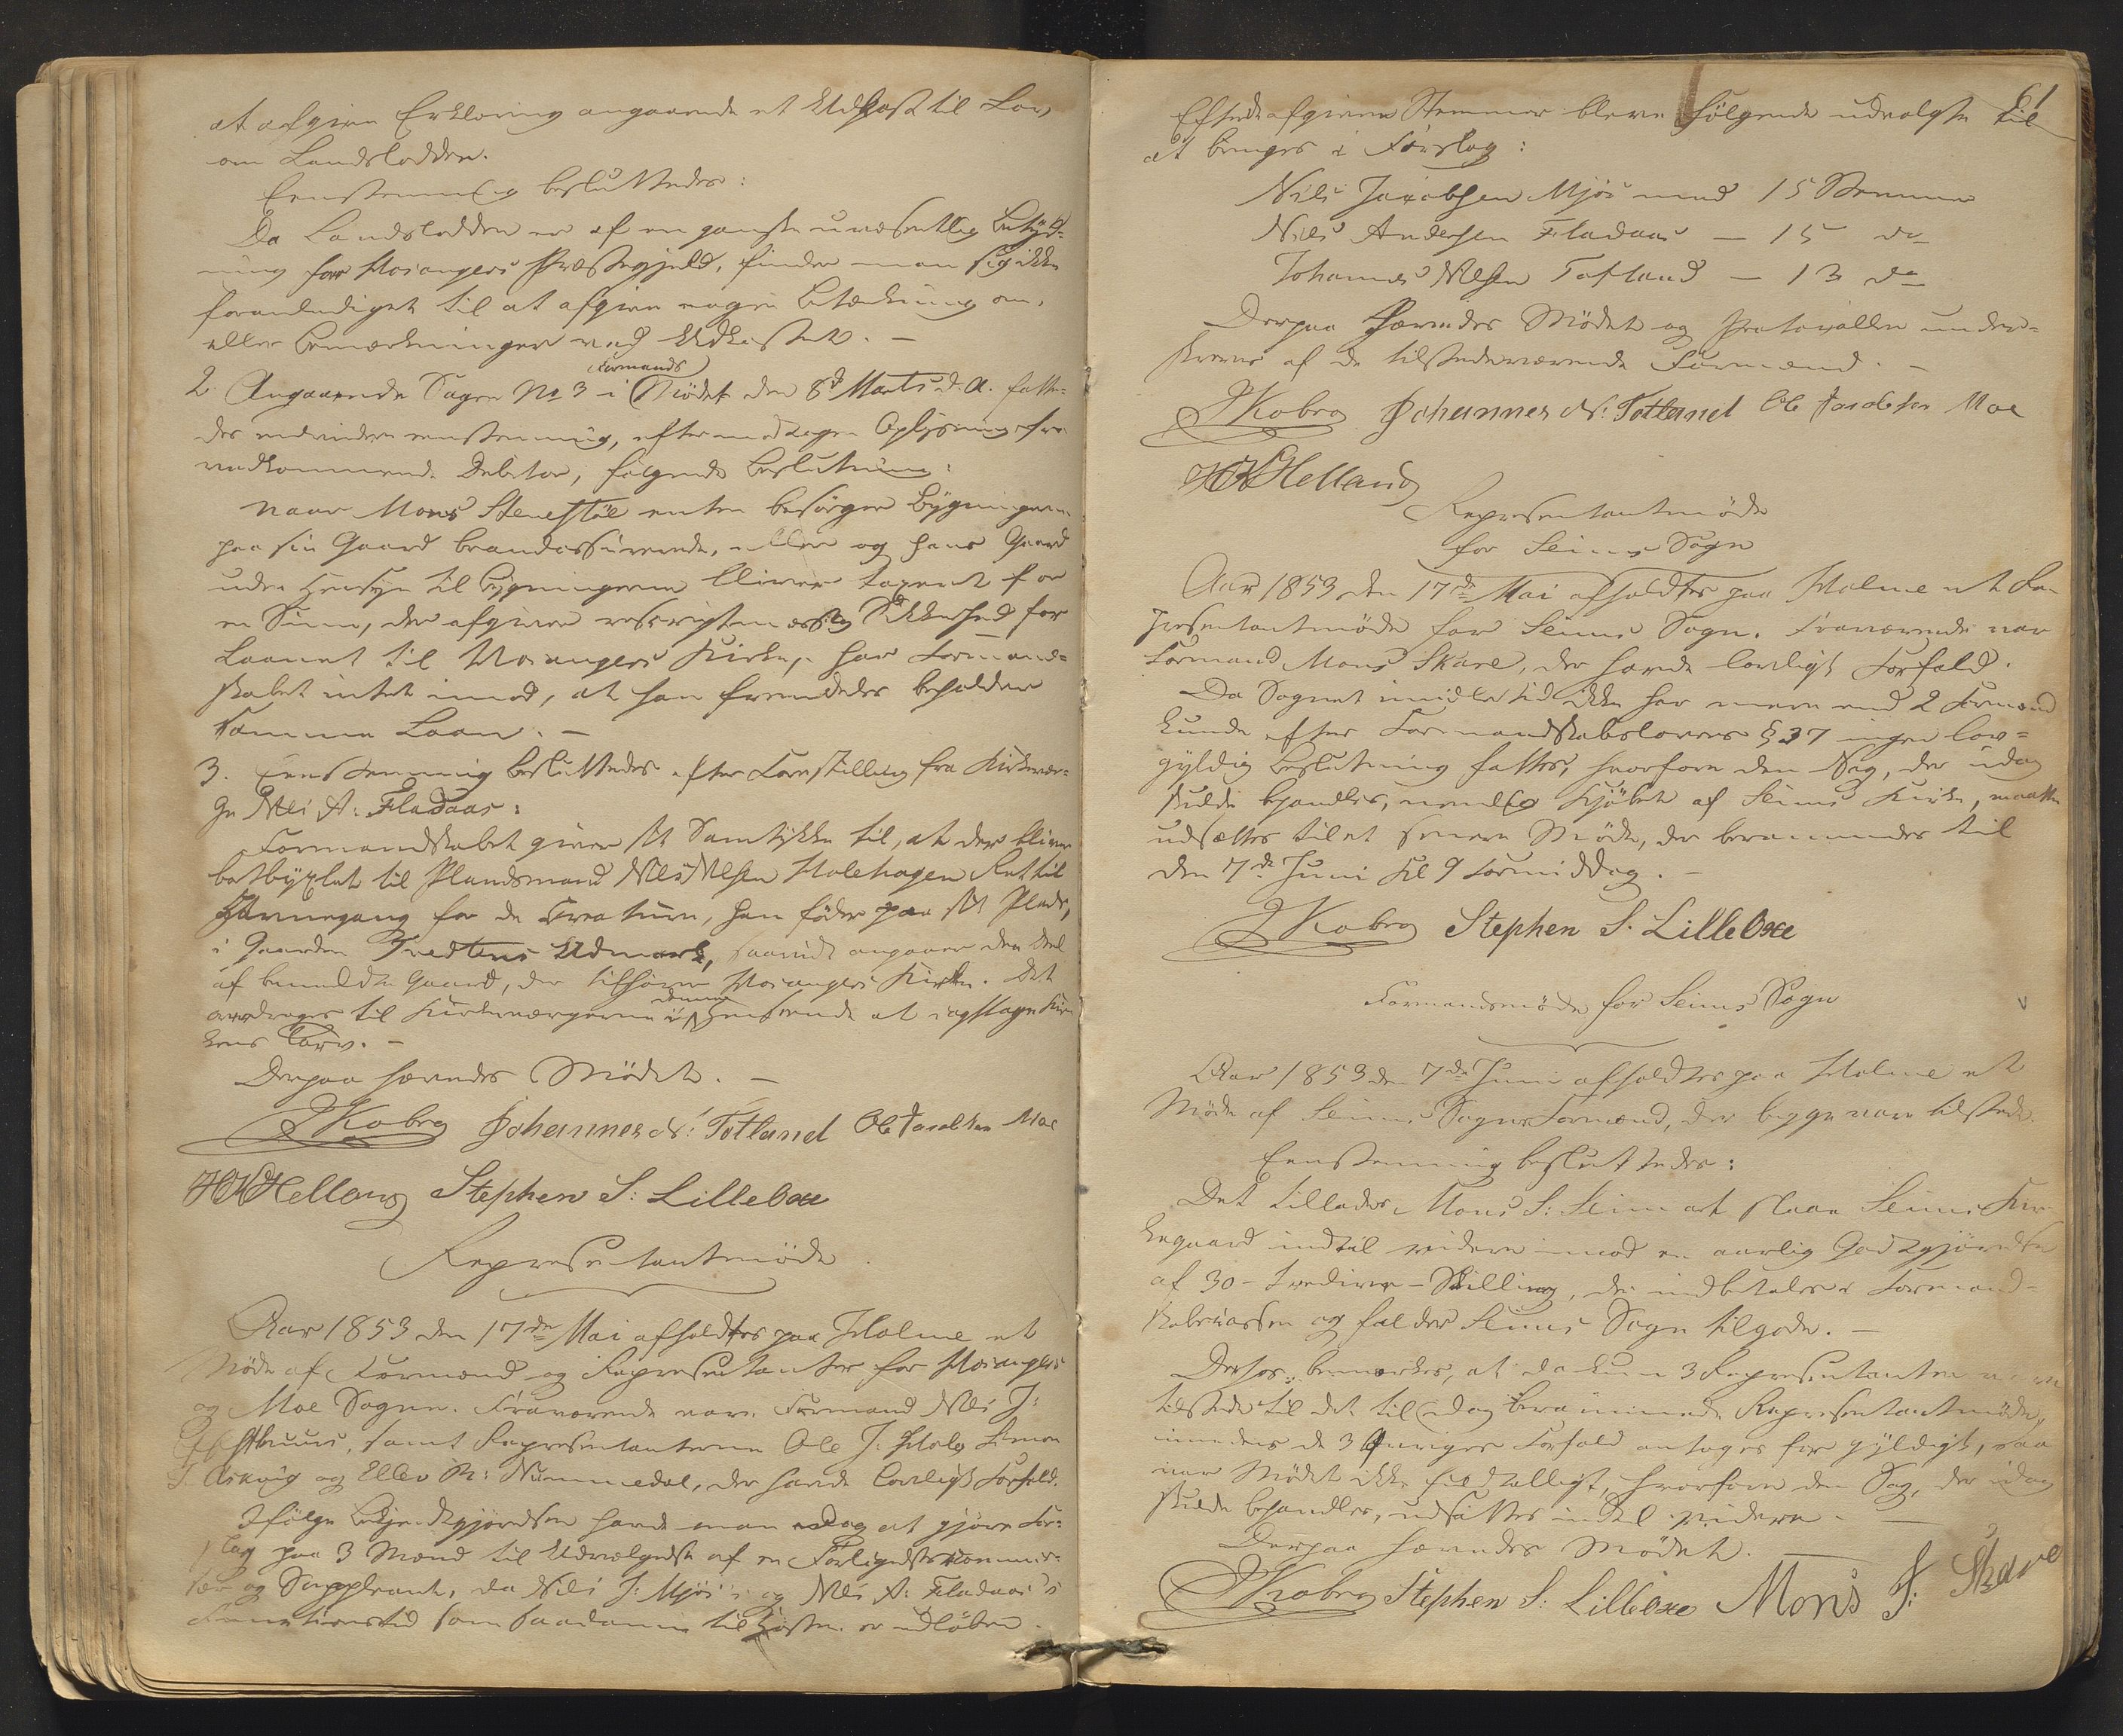 at afgive Erklæring angaaende et Udkast til Lov
om Landslodden.
Eenstemmig besluttedes:
Da Landslodden er af en ganske uvæsentlig Betyd-
ning for Hosangers Præstegjeld, finder man sig ikke
foranlediget til at afgive nogen Betænkning om,
eller Bemærkninger ved Udkastet. —
2 Angaaende Sagen No 3 i Formands Mødet den 8d Marts d. A. fatte-
des endvidere eenstemmig, efter modtagen Oplysning fra
vedkommende Debitor, følgende Beslutning:
naar Mons Stenestøl enten besørger Bygningerne
paa sin Gaard brandassurerede, eller og hans Gaard
uden Hensyn til Bygningerne bliver taxeret for
en Sum, der afgiver Sikkerhed for
Laanet til Hosangers Kirke, har Formand-
skabet intet imod, at han fremdeles beholder
samme Laan. —
3. Eenstemmig besluttedes efter Forestilling fra Kirkevær-
ge Nils A: Fladaas:
Formandskabet giver sit Samtykke til, at der bliver
bortbyxlet til Plandsmand Nils Nilsen Holehagen Ret til
Havnegang for de Creature, han føder paa sit Plads,
i Gaarden Tvedtens Udmark, saavidt angaaer den Deel
af bemeldte Gaard, der tilhører Hosangers Kirke. Det
overdrages til Kirkeværgerne i denne Henseende at iagttage Kir-
kens Tarv. —
Derpaa hævedes Mødet. —
JKobro Johannes N: Totland Ole Jacobsen Moe
HOHelland Stephen S: Lilleboe
Representantmøde
Aar 1853 den 17de Mai afholdtes paa Holme et
Møde af Formænd og Representanter for Hosangers
og Moe Sogne. Fraværende var Formand Nils J:
samt Representanterne Ole J: Simon
J. Askvig og Ellev M: Nummedal, der havde lovligt Forfald.
Ifølge Bekjendtgjørelsen havde man idag at gjøre For-
slag paa 3 Mænd til Udvælgelse af en Forligelsescommis-
sær og Suppleant, da Nils J: Mjøs's og Nils A: Fladaas's
Functionstid som saadanne til Høsten er udløben.
61
Efter de afgivne Stemmer bleve følgende udvalgte til
at bringes i Forslag:
Nils Jacobsen Mjøs med 15 Stemmer
Niels Andersen Fladaas — 15 do
Johannes Nilsen Totland — 13 do
Derpaa hævedes Mødet og Protocollen under-
skreves af de tilstedeværende Formænd. —
JKobro Johannes N: Totland Ole Jacobsen Moe
HOHelland
Representantmøde
for Seims Sogn
Aar 1853 den 17de Mai afholdtes paa Holme et Re-
presentantmøde for Seims Sogn. Fraværende var
Formand Mons Skare, der havde lovligt Forfald.
Da Sognet imidlertid ikke har mere end 2 Formænd
kunde efter Formandskabslovens § 37 ingen lov-
gyldig Beslutning fattes, hvorfore den Sag, der idag
skulde behandles, nemlig Kjøbet af Seims Kirke, maatte
udsættes til et senere Møde, der berammedes til
den 7de Juni Kl 9 Formiddag. —
JKobro Stephen S. Lilleboe
Formandsmøde for Seims Sogn
Aar 1853 den 7de Juni afholdtes paa Holme et
Møde af Seims Sogns Formænd, der begge vare tilstede.
Eenstemmig besluttedes:
Det tillades Mons S: Seim at slaae Seims Kir-
kegaard indtil videre imod en aarlig Godtgjørelse
af 30 - tredive - Skilling, der indbetales i Formand-
skabscassen og falder Seims Sogn tilgode. —
Derhos bemærkes, at da kun 3 Representanter vare
tilstede til det til idag berammede Representantmøde,
imedens de 3 øvriges Forfald antoges for gyldigt, saa
var Mødet ikke fuldtalligt, hvorfore den Sag, der idag
skulde behandles, udsattes indtil videre. —
Derpaa hævedes Mødet. —
JKobro Stephen S: Lilleboe Mons J: Skare